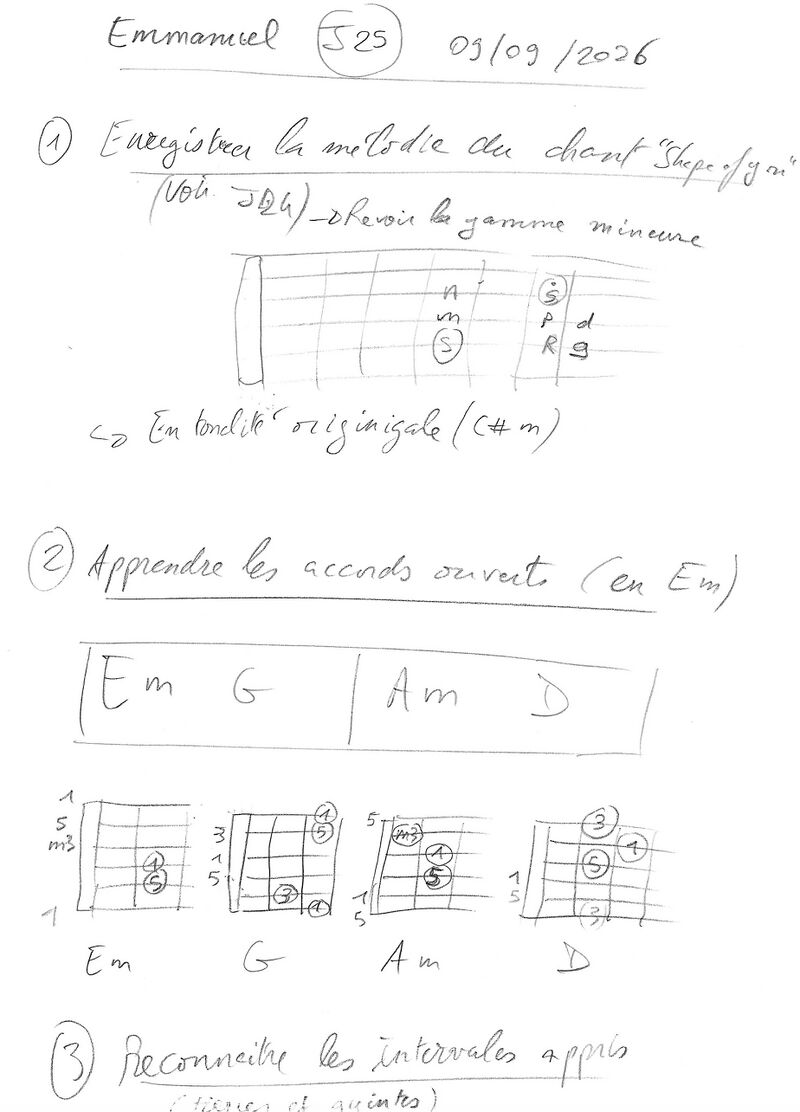 Emmanuel J25 09/09/2026
1 Enregistrer la mélodie du chant "Shape of you"
(Voir J24) → Revoir la gamme mineure
n s
m p d
S R g
↳ En tonalité originigale (C# m)
2 Apprendre les accords ouverts (en Em)
Em G Am D
1 1 5 3
5 3 5 m3 1
m3 1 1 5
1 5 5 1
5 3 1 5
1 1 5 3
Em G Am D
3 Reconnaitre les intervales appris
(tierces et quintes)